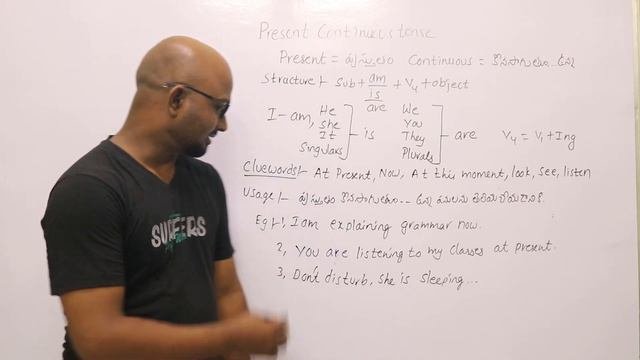 Present Continuous tense
Present = ప్రస్తుతం Continuous = కొనసాగుతూ.. ఉన్న
Structure :- Sub + am + V4 + object
is
are
I - am, He We
She You
It is They are V4 = V1 + Ing
Singulars Plurals
Cluewords :- At Present, Now, At this moment, look, see, listen
Usage :- ప్రస్తుతం కొనసాగుతూ.. ఉన్న
Eg :- 1, I am explaining grammar now.
2, You are listening to my classes at present.
3, Don't disturb, She is sleeping...